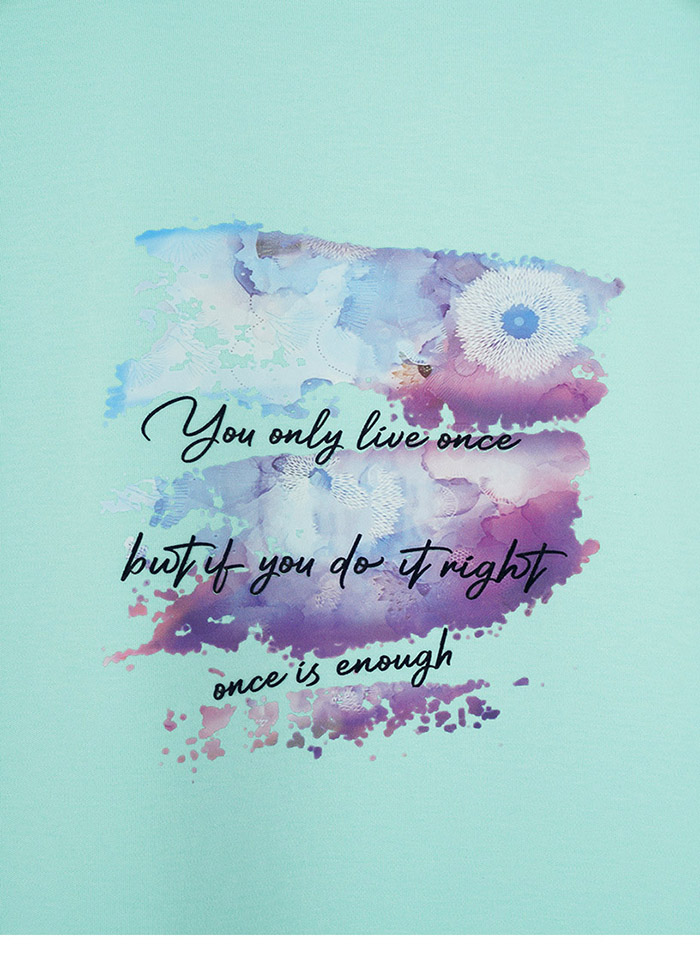 You only live once
but if you do it right
once is enough